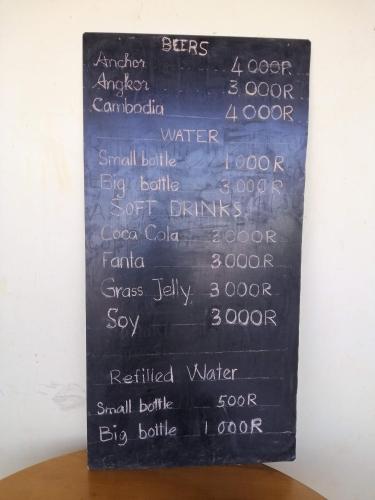 BEERS
Anchor 4000R
Angkor 3000R
Cambodia 4000R
WATER
Small bottle 1000R
Big bottle 3000R
SOFT DRINKS
Coca Cola 3000R
Fanta 3000R
Grass Jelly 3000R
Soy 3000R
Refilled Water
Small bottle 500R
Big bottle 1000R